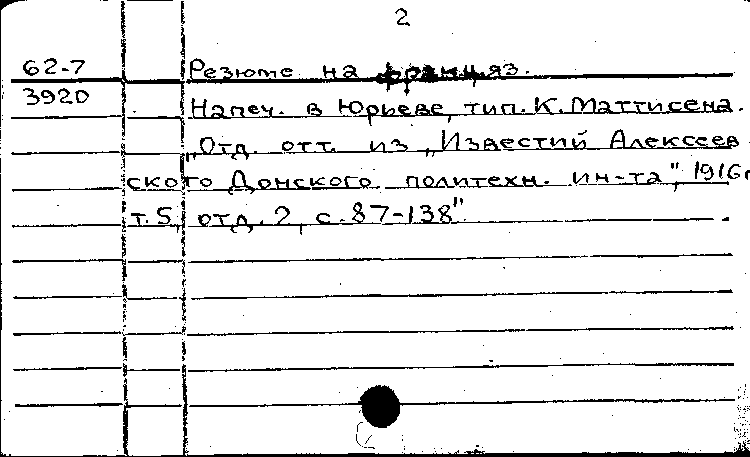 2
62-7 Резюме на франц. яз.
3920 Напеч. в Юрьеве, тип. К. Маттисена.
„Отд. отт. из „Известий Алексеев
ского Донского политехн. ин-та", 1916г
т. 5, отд. 2, с. 87-138"